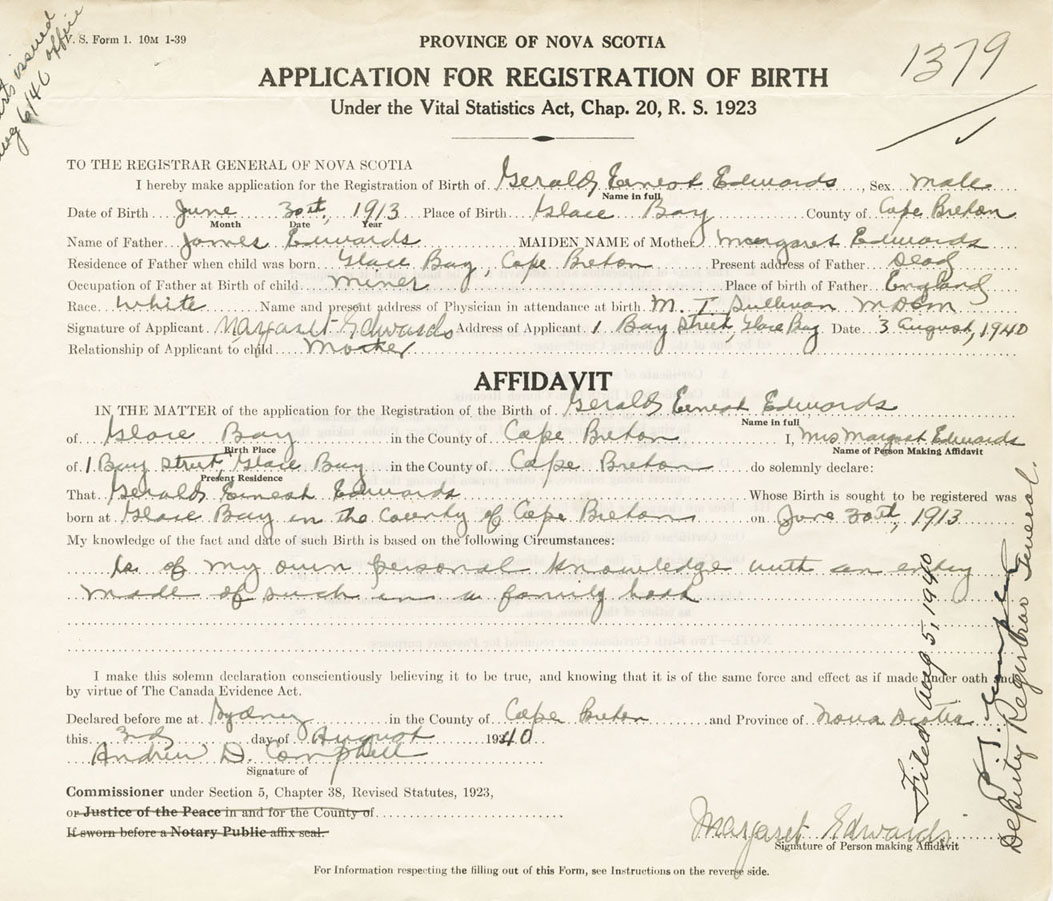 V. S. Form 1. 10M 1-39
issued
Aug 6/40 office
PROVINCE OF NOVA SCOTIA
1379
APPLICATION FOR REGISTRATION OF BIRTH
Under the Vital Statistics Act, Chap. 20, R. S. 1923
TO THE REGISTRAR GENERAL OF NOVA SCOTIA
I hereby make application for the Registration of Birth of Gerald Ernest Edwards, Sex Male
Name in full
Date of Birth June 30th, 1913 Place of Birth Glace Bay County of Cape Breton
Month Date Year
Name of Father James Edwards MAIDEN NAME of Mother Margaret Edwards
Residence of Father when child was born Glace Bay, Cape Breton Present address of Father Dead
Occupation of Father at Birth of child miner Place of birth of Father England
Race White Name and present address of Physician in attendance at birth M. T. Sullivan
Signature of Applicant Margaret Edwards Address of Applicant 1 Bay Street, Glace Bay Date 3 August, 1940
Relationship of Applicant to child Mother
AFFIDAVIT
IN THE MATTER of the application for the Registration of the Birth of Gerald Ernest Edwards
Name in full
of Glace Bay in the County of Cape Breton I, Mrs Margaret Edwards
Birth Place Name of Person Making Affidavit
of 1 Bay Street Glace Bay in the County of Cape Breton do solemnly declare:
Present Residence
That Gerald Ernest Edwards Whose Birth is sought to be registered was
born at Glace Bay in the County of Cape Breton on June 30th, 1913
My knowledge of the fact and date of such Birth is based on the following Circumstances:
Is of my own personal knowledge with an entry
made of such in a family book
I make this solemn declaration conscientiously believing it to be true, and knowing that it is of the same force and effect as if made under oath and
by virtue of The Canada Evidence Act.
Declared before me at Sydney in the County of Cape Breton and Province of Nova Scotia
this 3rd day of August 1940
Andrew D. Campbell
Signature of
Commissioner under Section 5, Chapter 38, Revised Statutes, 1923,
or Justice of the Peace in and for the County of
If sworn before a Notary Public affix seal.
Margaret Edwards
Signature of Person making Affidavit
For Information respecting the filling out of this Form, see Instructions on the reverse side.
Filed Aug 5, 1940
Deputy Registrar General